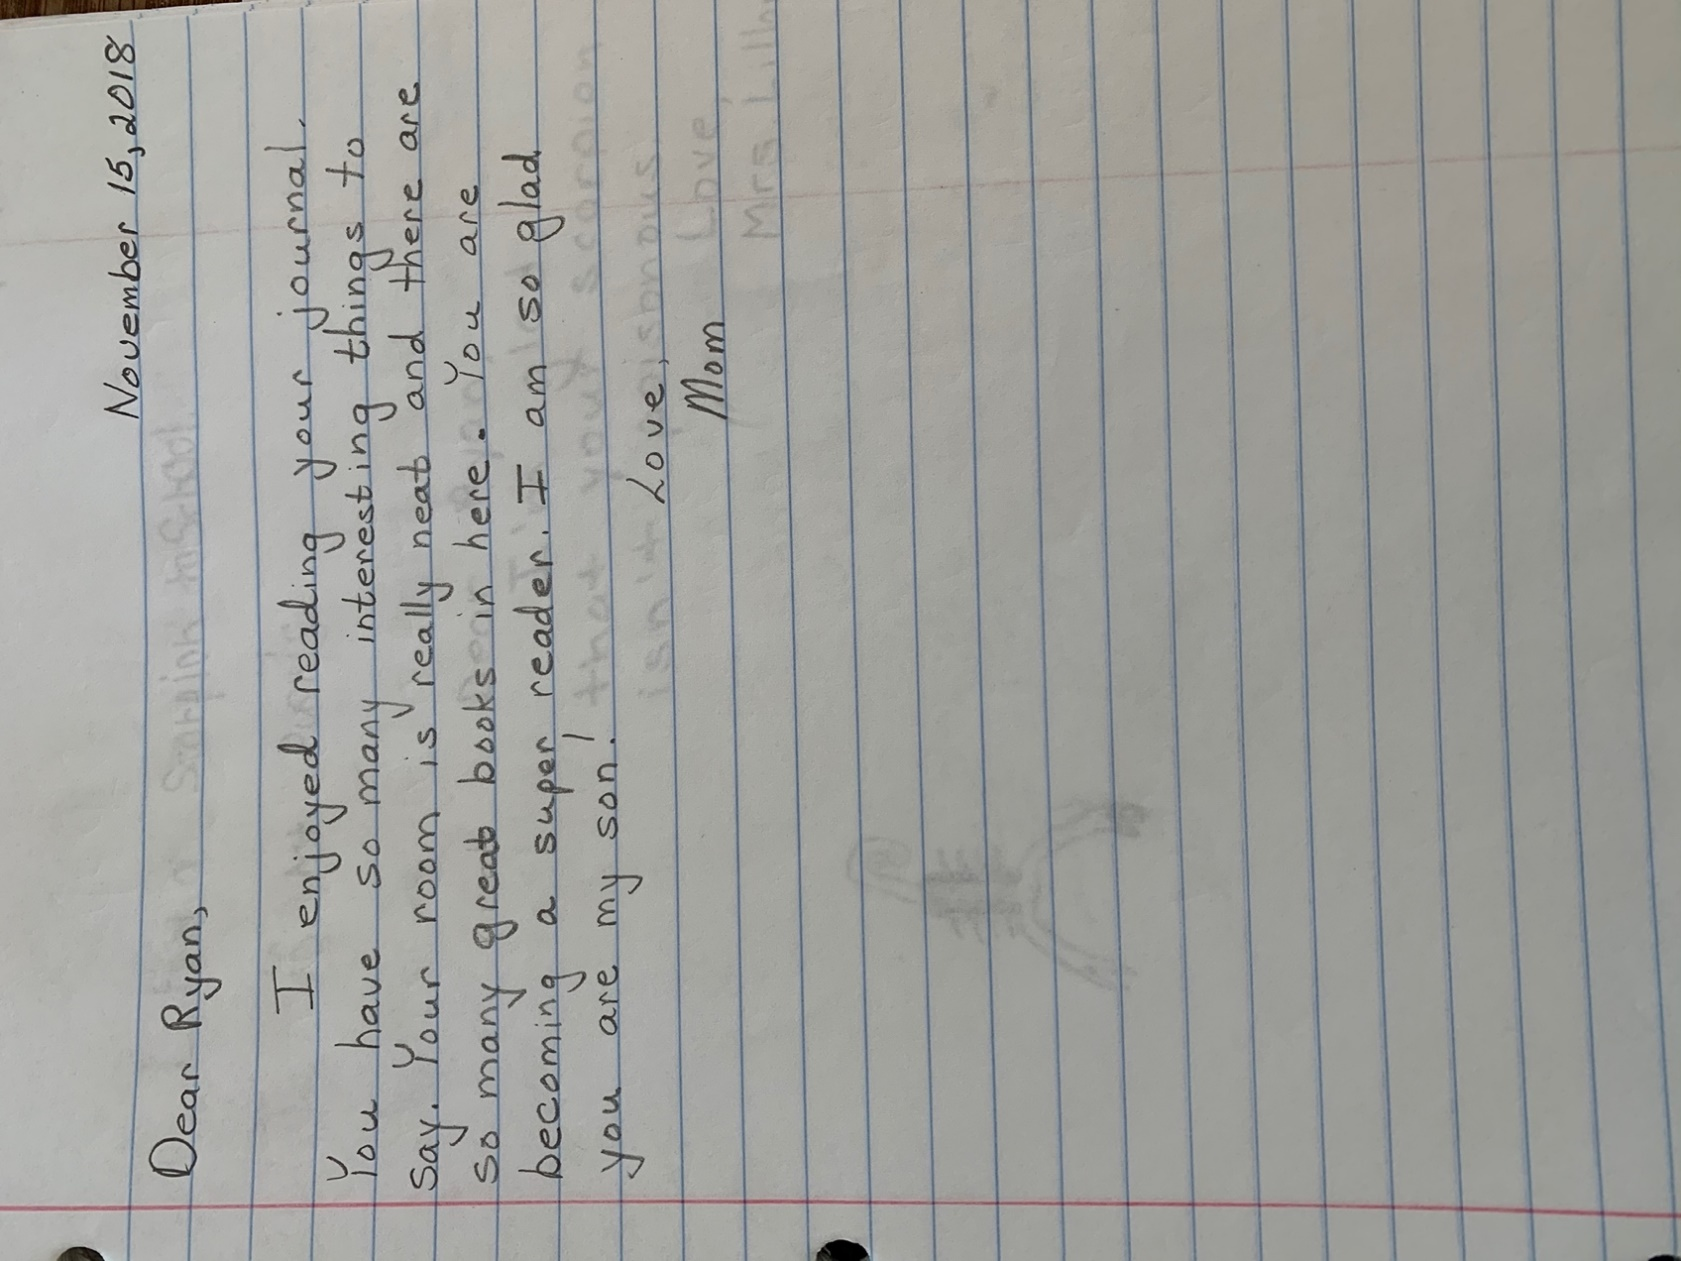 November 15, 2018
Dear Ryan,
I enjoyed reading your journal.
You have so many interesting things to
say. Your room is really neat and there are
so many great books in here. You are
becoming a super reader. I am so glad
you are my son!
Love,
Mom
that your scorpion
isn't poisonous
Love,
Mrs.